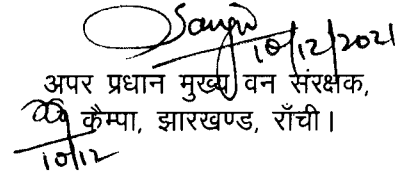 10/12/2021
अपर प्रधान मुख्य वन संरक्षक,
कैम्पा, झारखण्ड, राँची।
10/12